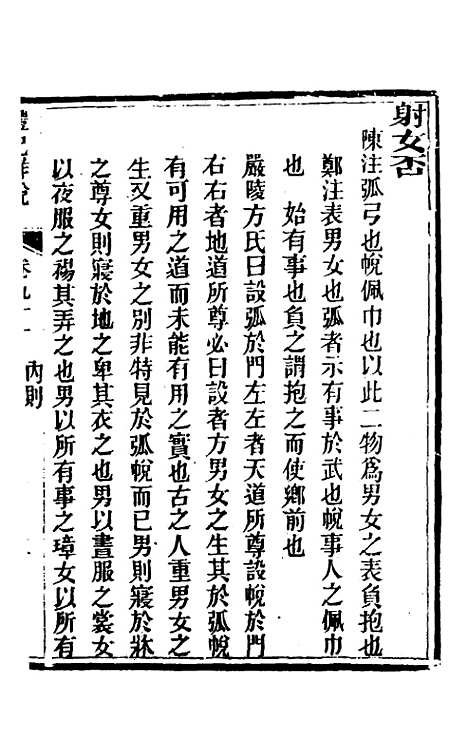 射女否
陳注弧弓也帨佩巾也以此二物爲男女之表負抱也
鄭注表男女也弧者示有事於武也帨事人之佩巾
也　始有事也負之謂抱之而使鄉前也
嚴陵方氏曰設弧於門左左者天道所尊設帨於門
右右者地道所尊必曰設者方男女之生其於弧帨
有可用之道而未能有用之實也古之人重男女之
生又重男女之别非特見於弧帨而已男則寢於牀
之尊女則寢於地之卑其衣之也男以晝服之裳女
以夜服之裼其弄之也男以所有事之璋女以所有
禮記詳說
卷九十
內則